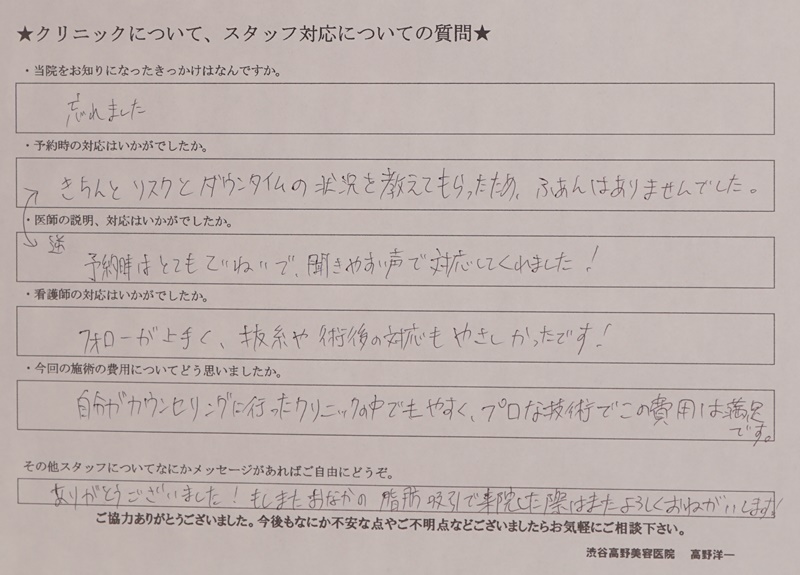 ★クリニックについて、スタッフ対応についての質問★
・当院をお知りになったきっかけはなんですか。
忘れました
・予約時の対応はいかがでしたか。
きちんとリスクとダウンタイムの状況を教えてもらったため、ふあんはありませんでした。
・医師の説明、対応はいかがでしたか。
逆
予約時はとてもていねいで、聞きやすい声で対応してくれました!
・看護師の対応はいかがでしたか。
フォローが上手く、抜糸や術後の対応もやさしかったです!
・今回の施術の費用についてどう思いましたか。
自分がカウンセリングに行ったクリニックの中でもやすく、プロな技術でこの費用は満足
です。
その他スタッフについてなにかメッセージがあればご自由にどうぞ。
ありがとうございました!もしまたおなかの脂肪吸引で来院した際はまたよろしくおねがいします!
ご協力ありがとうございました。今後もなにか不安な点やご不明点などございましたらお気軽にご相談下さい。
渋谷高野美容医院 高野洋一